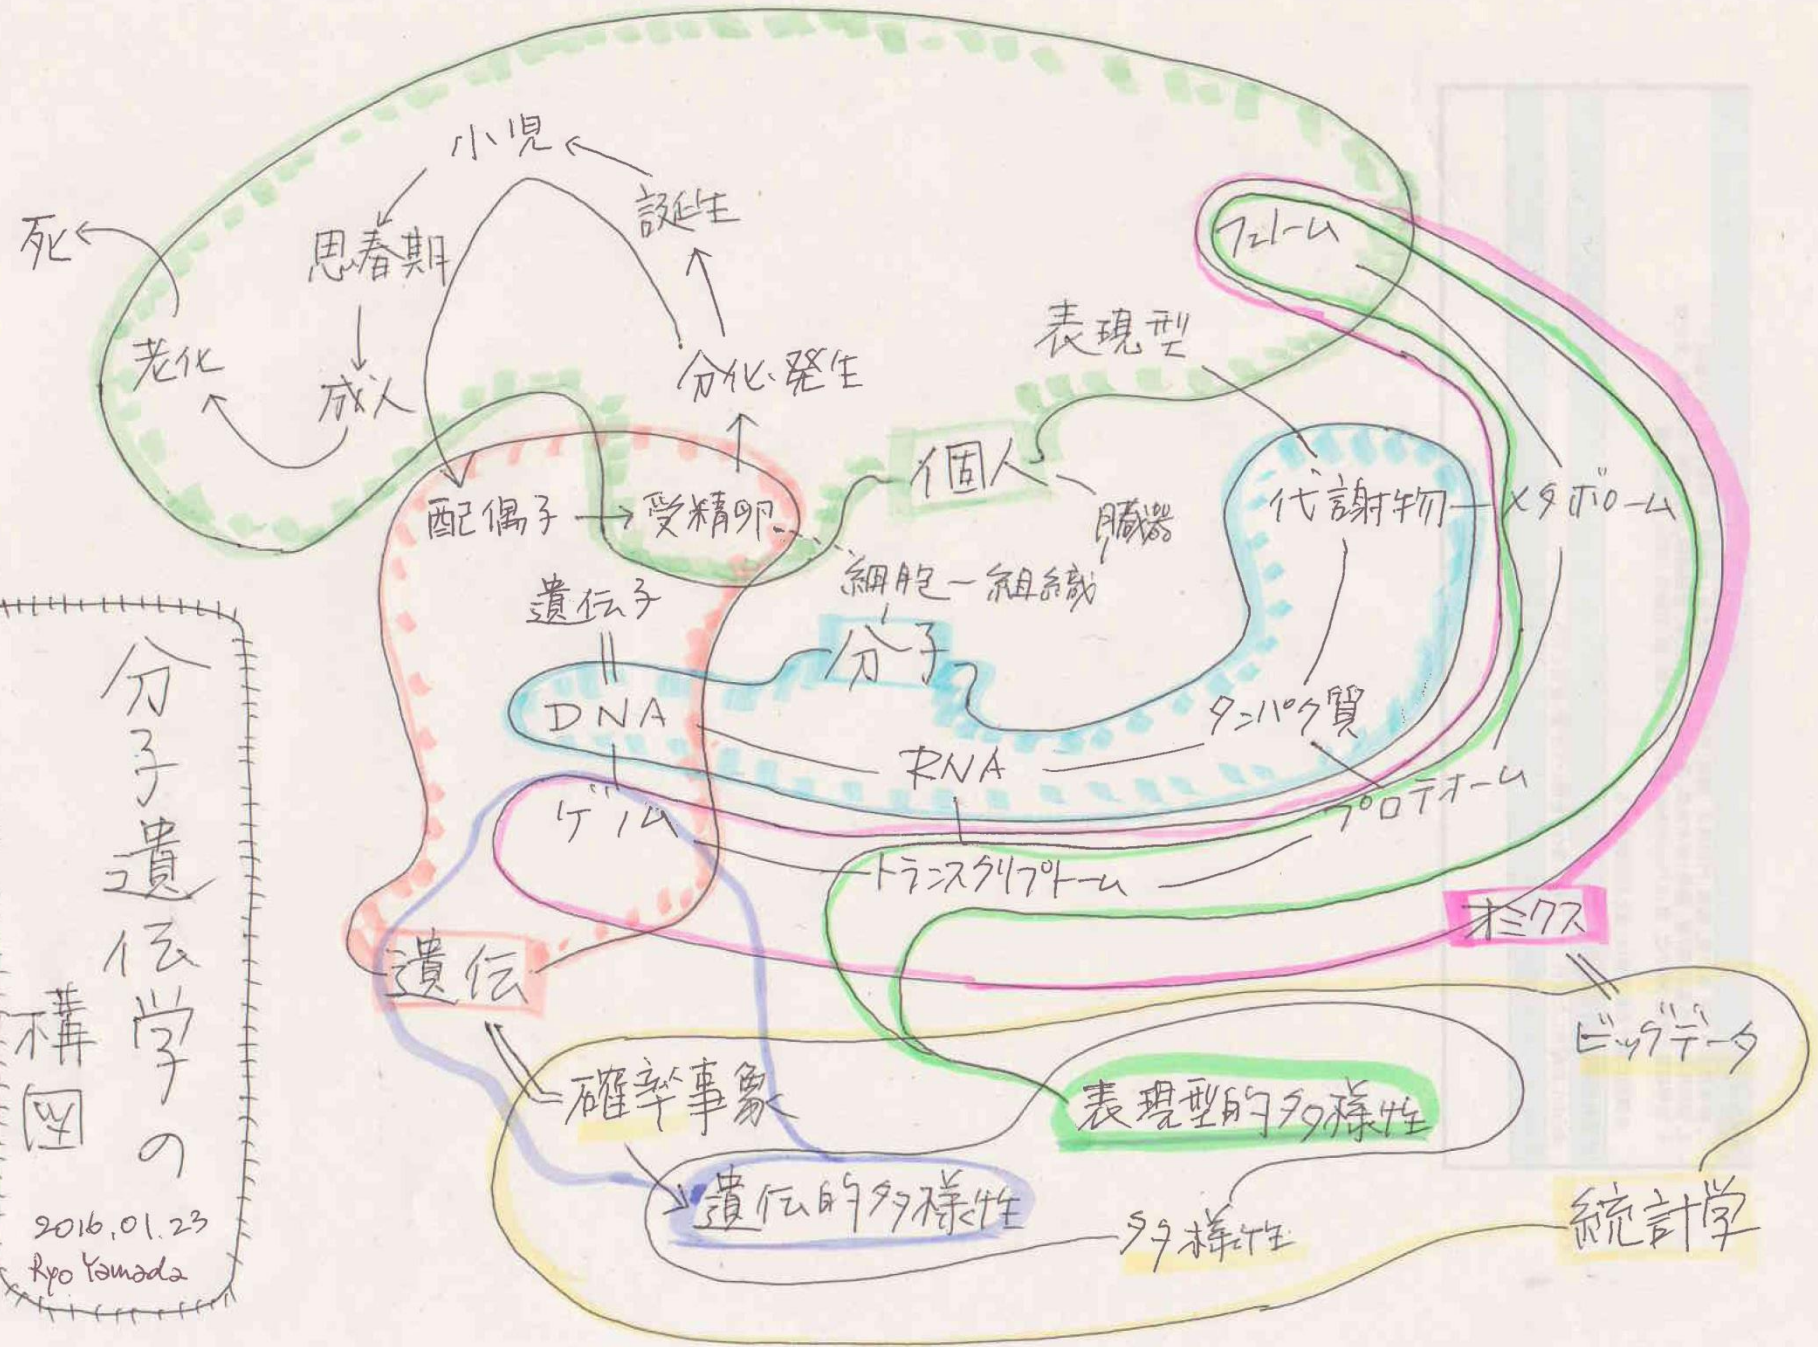 小児
誕生
死
思春期
フェノーム
表現型
老化
成人
分化・発生
個人
配偶子
受精卵
代謝物
メタボローム
臓器
細胞ー組織
遺伝子
分子
DNA
タンパク質
RNA
ゲノム
プロテオーム
トランスクリプトーム
オミクス
遺伝
ビッグデータ
確率事象
表現型的多様性
遺伝的多様性
多様性
統計学
分子遺伝学の
構図
2016.01.23
Ryo Yamada